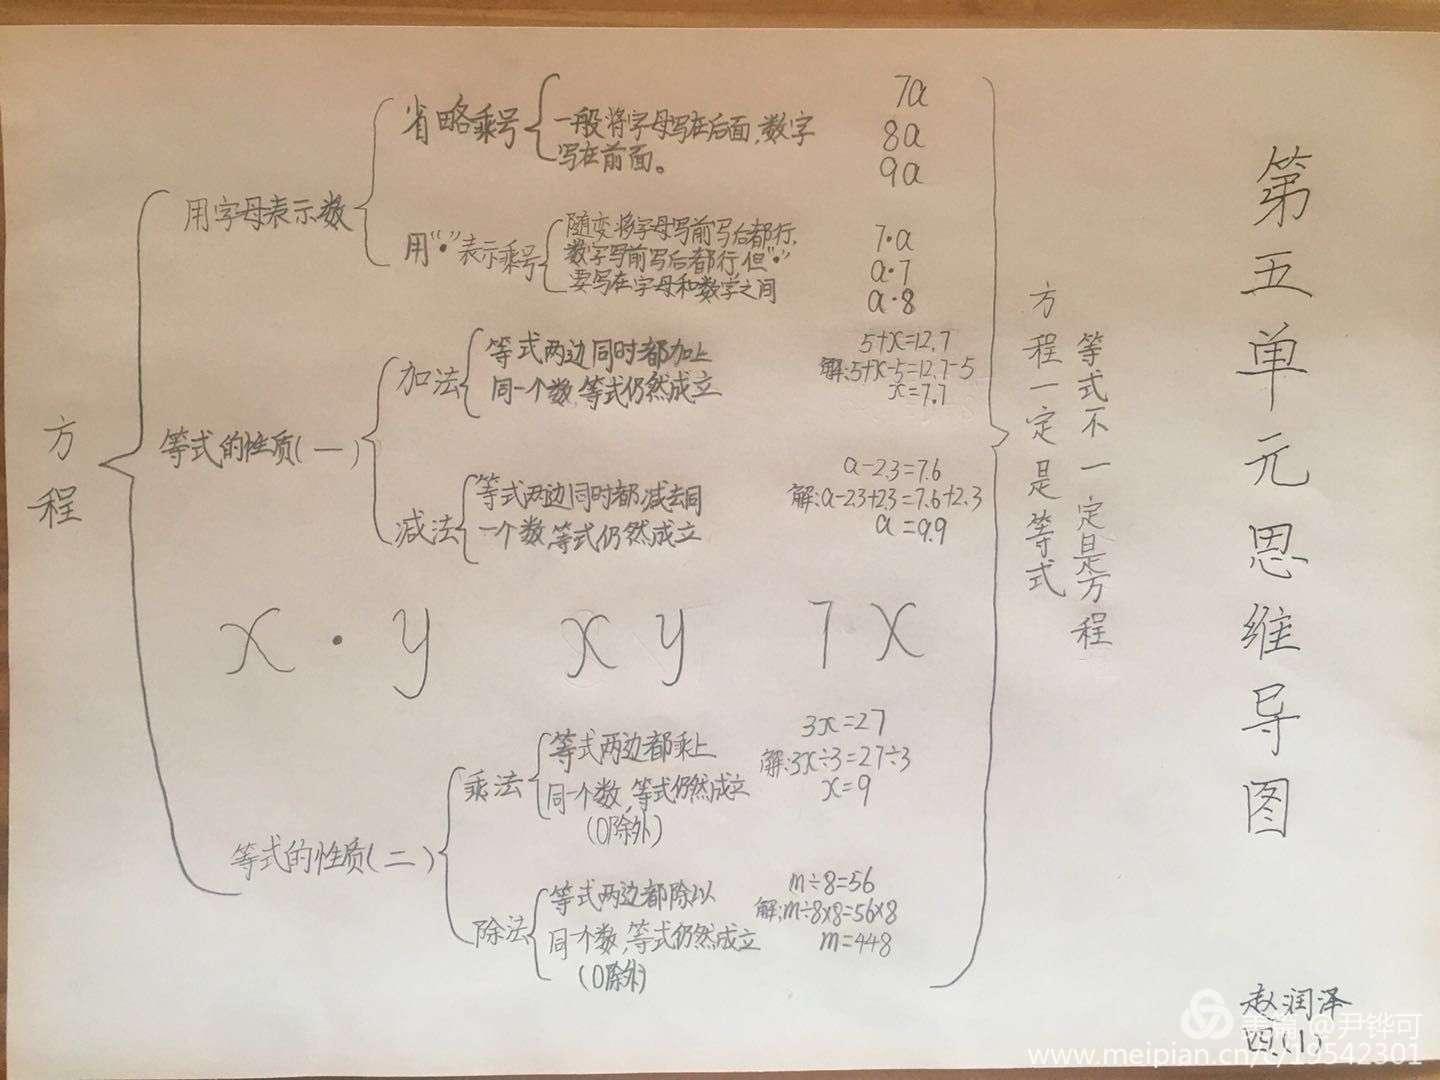 第五单元思维导图
方程
用字母表示数
省略乘号
一般将字母写在后面,数字
写在前面。
7a
8a
9a
用“•”表示乘号
随变将字母写前写后都行,
数字写前写后都行,但“•”
要写在字母和数字之间
7•a
a•7
a•8
等式的性质(一)
加法
等式两边同时都加上
同一个数,等式仍然成立
5+x=12.7
解:5+x-5=12.7-5
x=7.7
减法
等式两边同时都减去同
一个数,等式仍然成立
a-2.3=7.6
解:a-2.3+2.3=7.6+2.3
a=9.9
x•y xy 7x
等式的性质(二)
乘法
等式两边都乘上
同一个数,等式仍然成立
(0除外)
3x=27
解:3x÷3=27÷3
x=9
除法
等式两边都除以
同一个数,等式仍然成立
(0除外)
m÷8=56
解:m÷8×8=56×8
m=448
方程一定是等式
等式不一定是方程
赵润泽
四(1)
美篇 @尹铧可
www.meipian.cn/c/19542301